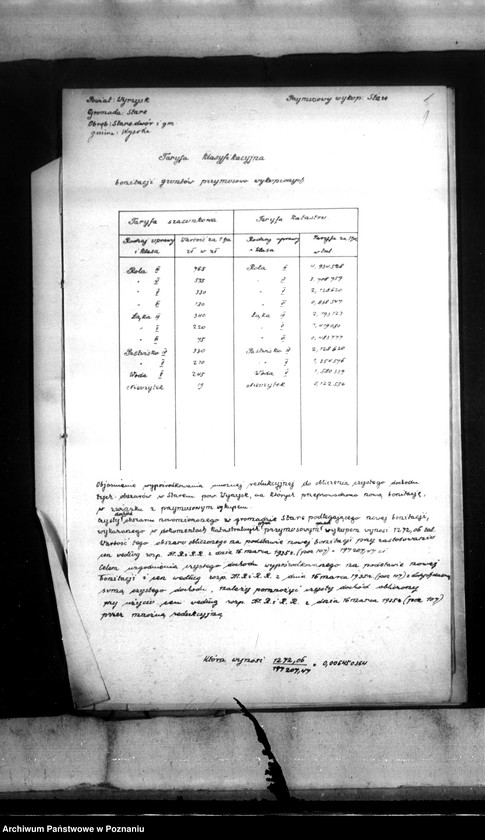 Powiat: Wyrzysk
Przymusowy wykup. Stare
Gromada: Stare
Obręb: Stare dwór i gm.
gmina: Wysoka
Taryfa klasyfikacyjna
bonitacji gruntów przymusowo wykupionych
Taryfa szacunkowa Taryfa katastru
Rodzaj uprawy i klasa Wartość za 1 ha zł w zł Rodzaj uprawy i klasa Taryfa za 1 ha w tal.
Rola Rola
330 2,128620
130
Łąka 340 Łąka
220
75
Pastwisko 330 Pastwisko 2,128620
210
Woda 245 Woda 1,580339
Nieużytek 19 Nieużytek 0,122554
Objaśnienie wypośrodkowania mnożnej redukcyjnej do obliczenia czystego dochodu
tych obszarów w Starem pow. Wyrzysk, na których przeprowadzono nową bonitację,
w związku z przymusowym wykupem
Czysty dochód obszaru nowomierzonego w gromadzie Stare podlegającego nowej bonitacji,
wykazanego w dokumentach katastralnych przymusowym wykupem wynosi 1272,06 tal.
Wartość tego obszaru obliczonego na podstawie nowej bonitacji przy zastosowaniu
cen według rozp. M.R.i R.R. z dnia 16 marca 1935r. (poz 107) = 197207,47 zł
Celem uzgodnienia czystego dochodu wypośrodkowanego na podstawie nowej
bonitacji i cen według rozp. M.R.i R.R. z dnia 16 marca 1935r. (poz 107) z dotychczasową
sumą czystego dochodu, należy pomnożyć czysty dochód obliczony
przy użyciu cen według rozp. M.R.i R.R. z dnia 16 marca 1935r (poz 107)
przez mnożną redukcyjną
która wynosi 1272,06 / 197207,47 = 0,006450364
Archiwum Państwowe w Poznaniu